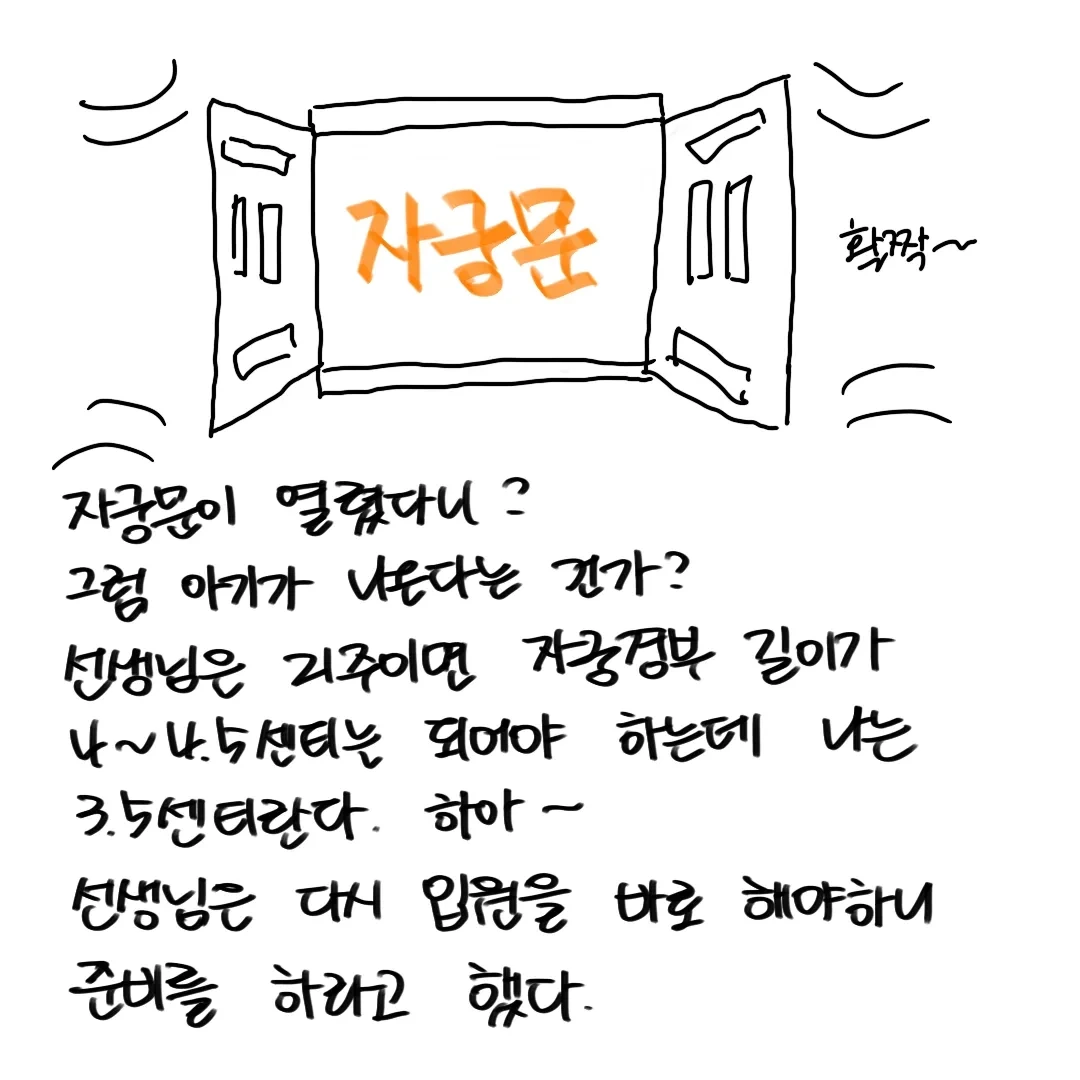 자궁문
활짝~
자궁문이 열렸다니?
그럼 아기가 나온다는 건가?
선생님은 21주이면 자궁경부 길이가
4~4.5센티는 되어야 하는데 나는
3.5센티란다. 하아~
선생님은 다시 입원을 바로 해야하니
준비를 하라고 했다.